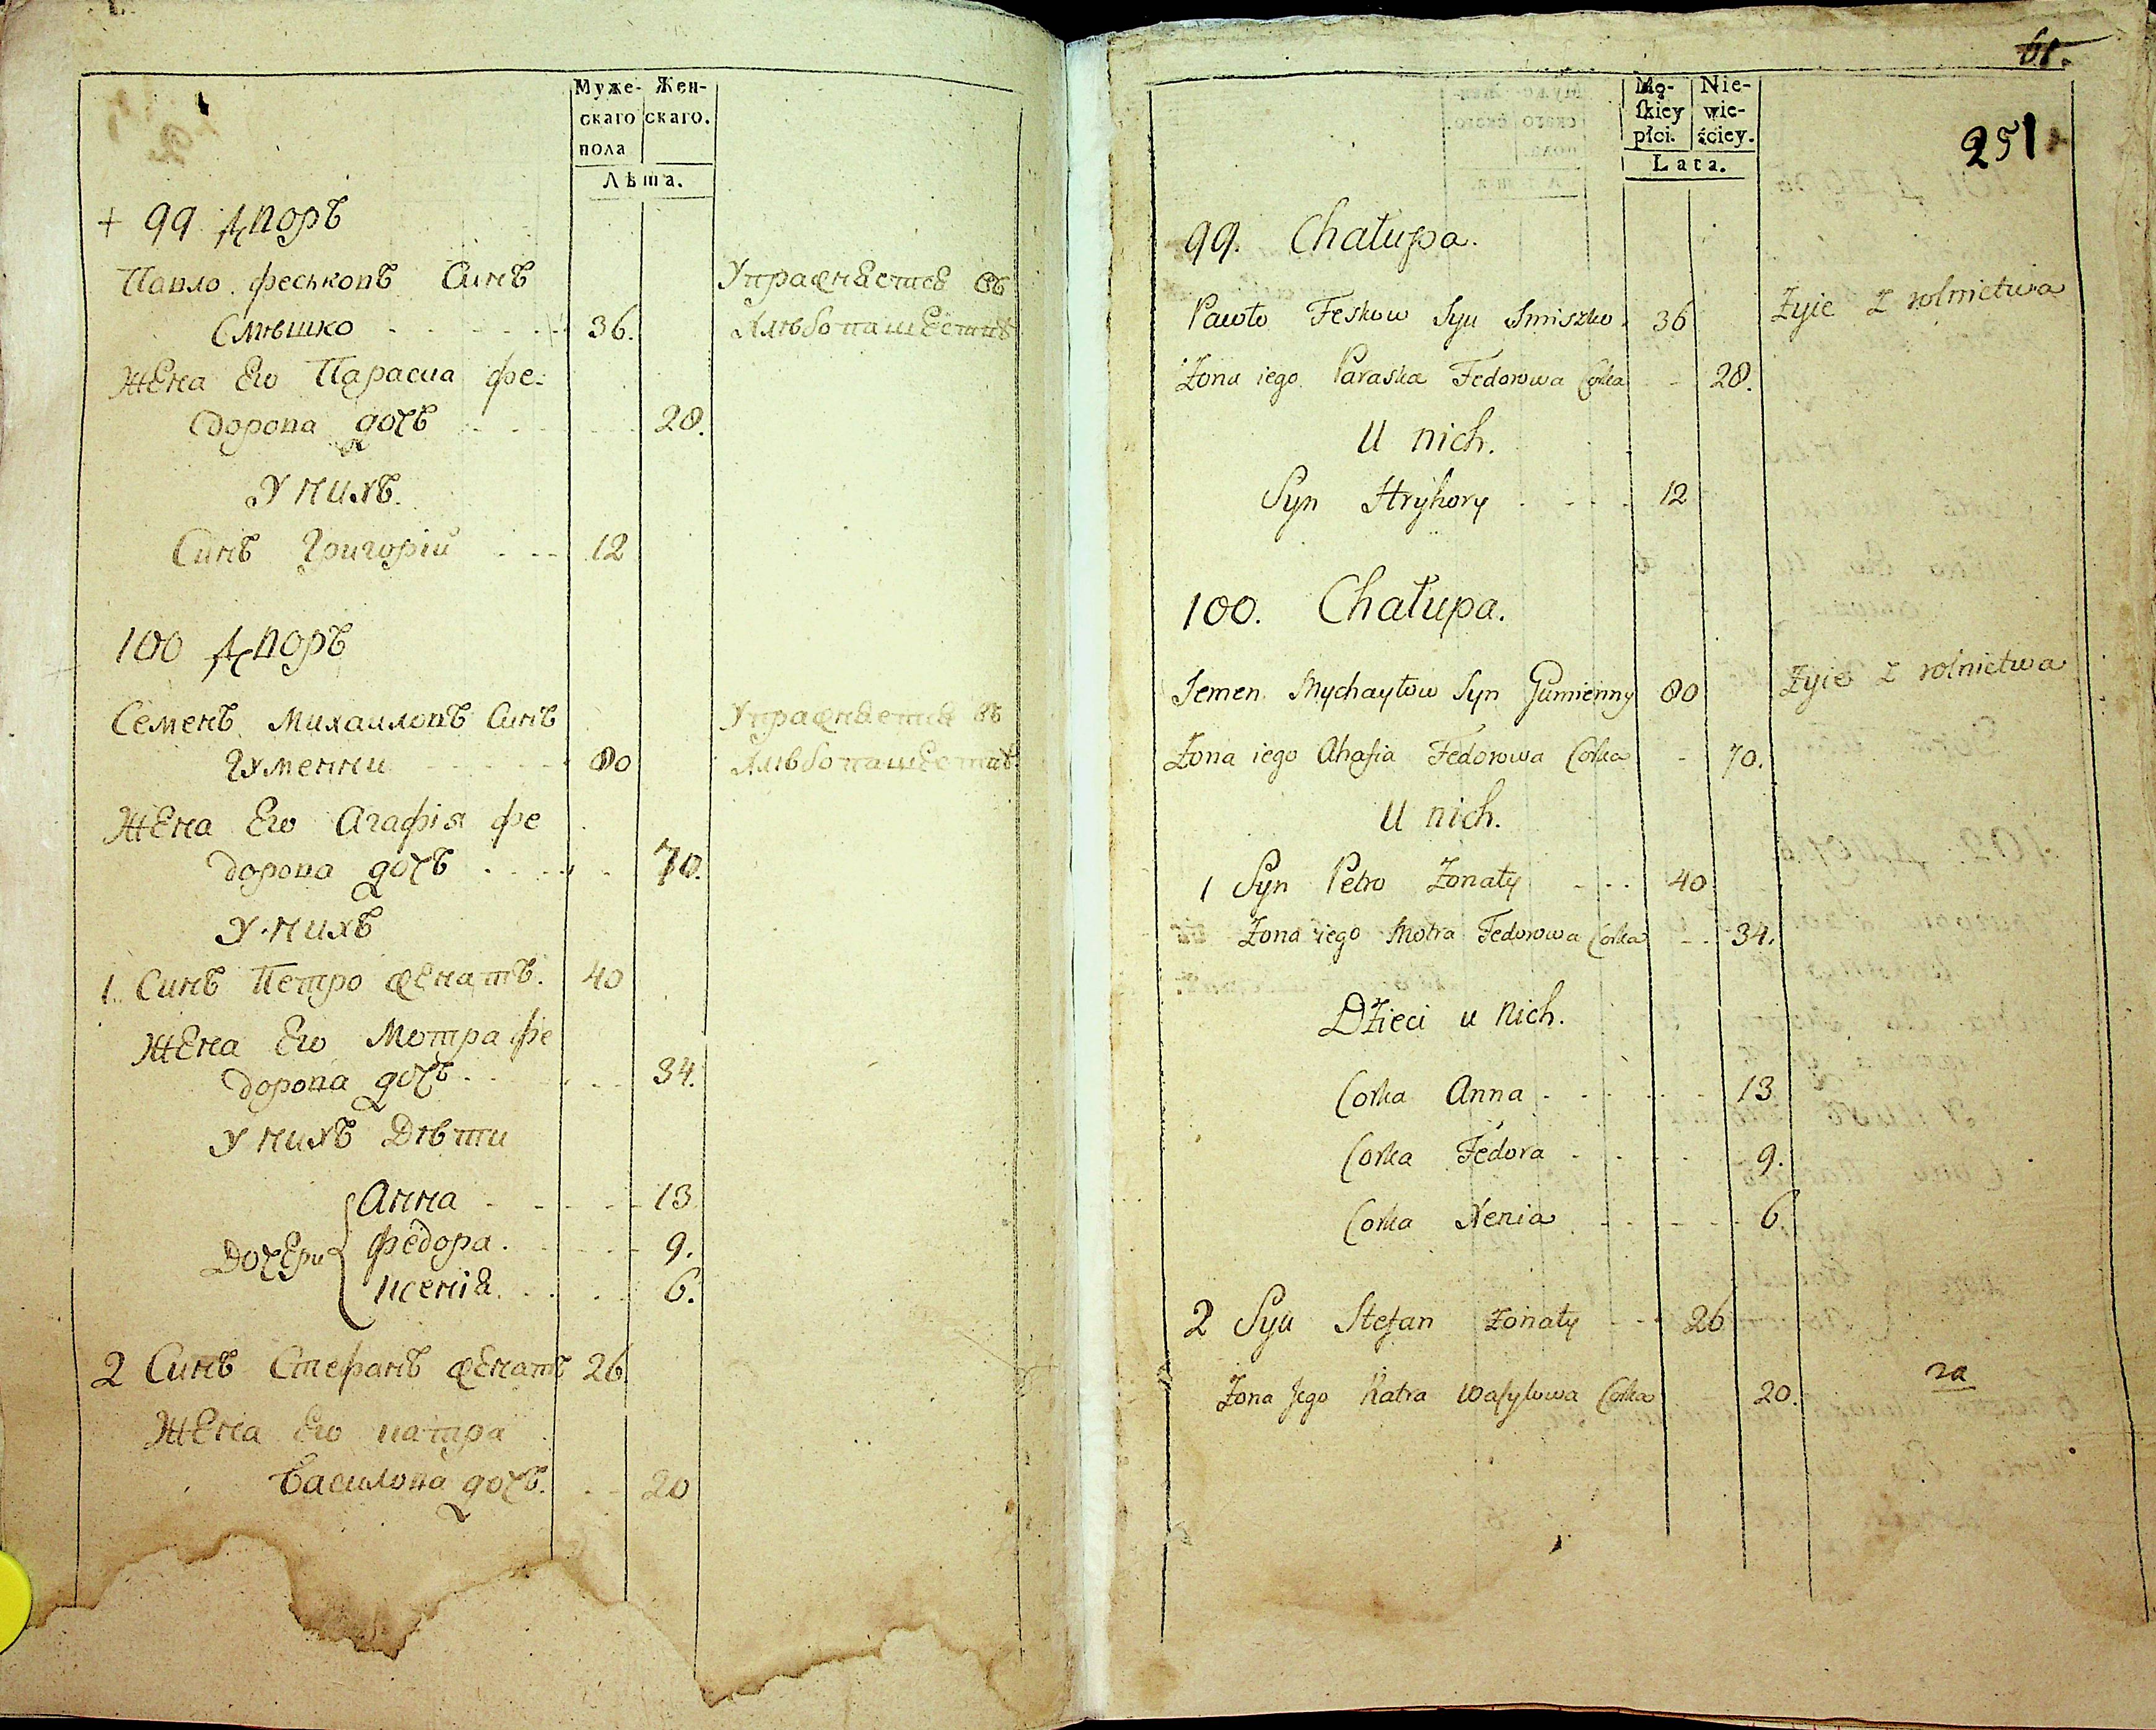 Муже- Жен-
скаго скаго.
пола
Лѣта.
+ 99 Дворъ
Павло Феськовъ Синъ
Смѣшко 36.
Жена Его Параска Фе-
дорова дочъ 28.
У нихъ.
Синъ Григорій 12
100 Дворъ
Семенъ Михаиловъ Синъ
Гуменни 80
Жена Его Агафія Фе
дорова дочъ 70.
У нихъ
1. Синъ Петро женатъ. 40
Жена Его Мотра Фе
дорова дочъ 34.
У нихъ Дѣти
Дочери
Анна 13
Федора. 9.
Ксенія. 6.
2 Синъ Стефанъ женатъ 26
Жена Его Катра
Василова дочъ. 20
Упражняется въ
Хлѣбопашествѣ
Упражняется въ
Хлѣбопашествѣ
61.
251
Mę- Nie-
skiey wie-
płci. ściey.
Lata.
99. Chałupa.
Pawło Feskow Syn Smiszko. 36 Żyie z rolnictwa
Żona iego Paraska Fedorowa Corka 28.
U nich.
Syn Hryhory 12
100. Chałupa.
Semen Mychayłow Syn Gumienny 80 Żyie z rolnictwa
Żona iego Ahafia Fedorowa Corka 70.
U nich.
1 Syn Petro Żonaty 40
Żona iego Motra Fedorowa Corka 34.
Dzieci u nich.
Corka Anna 13
Corka Fedora 9.
Corka Xenia 6.
2 Syn Stefan żonaty 26
Żona Jego Katra Wasylowa Corka 20.
za